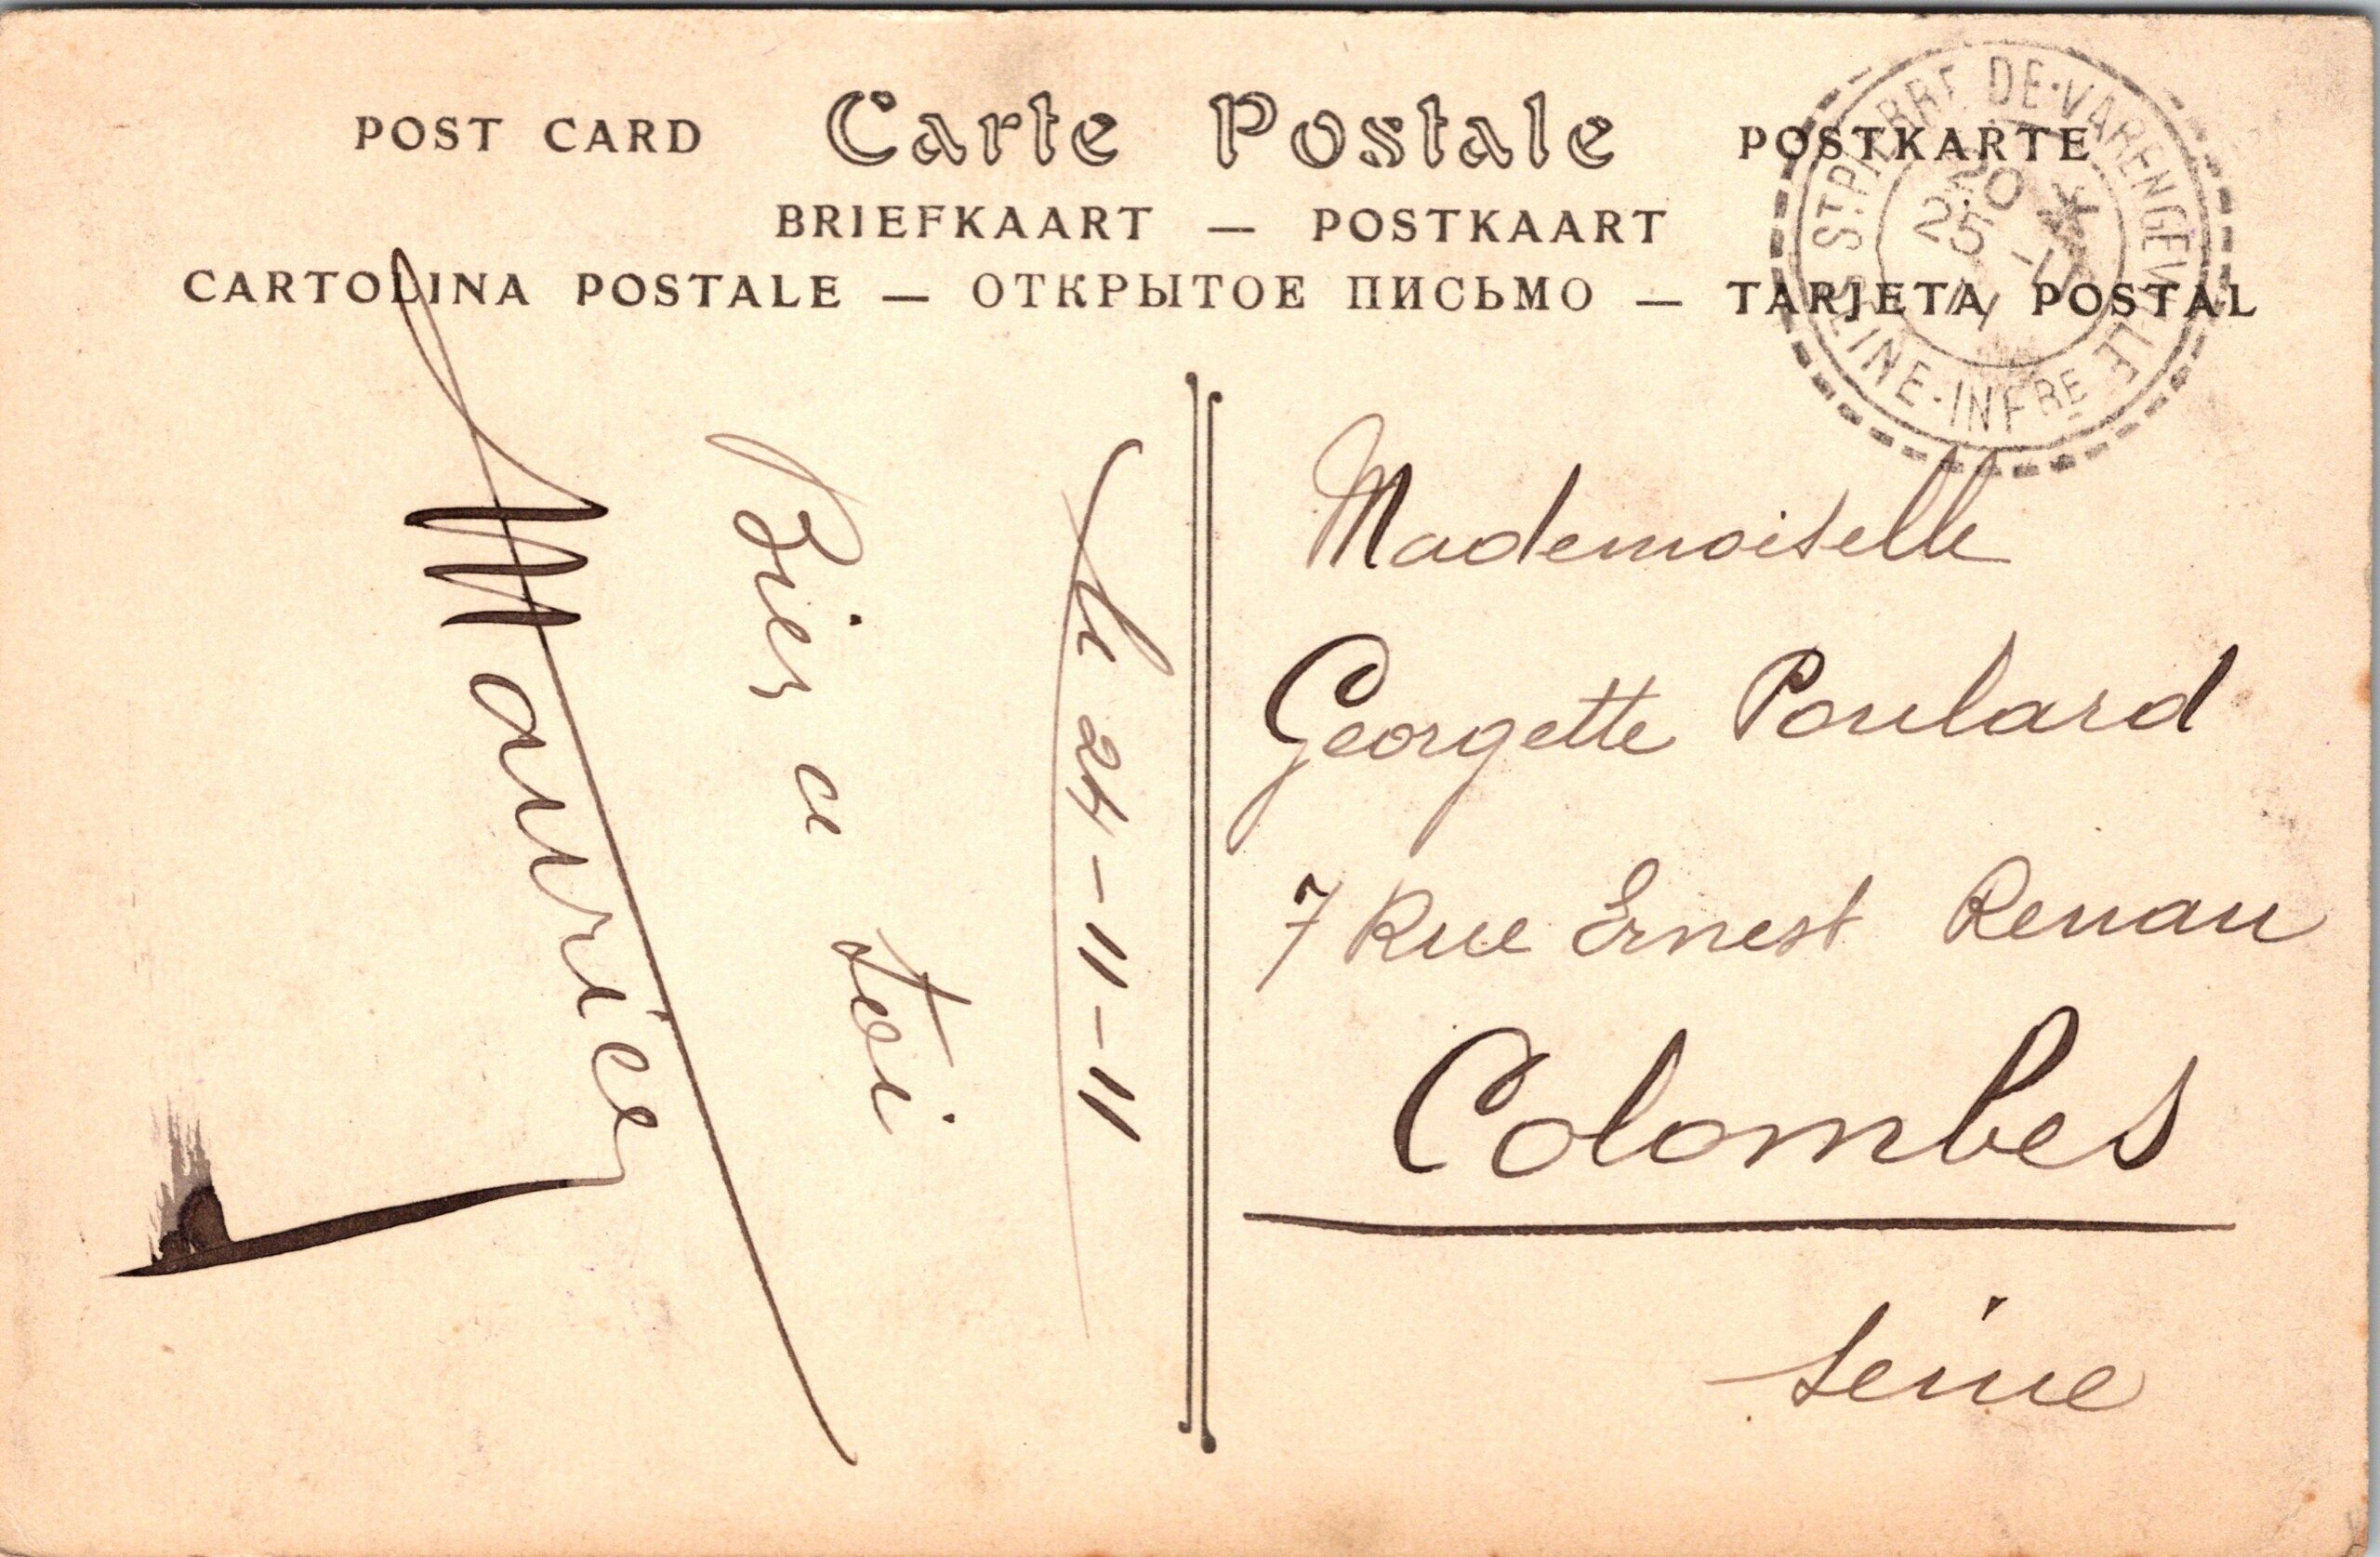 POST CARD Carte Postale POSTKARTE
BRIEFKAART — POSTKAART
CARTOLINA POSTALE — ОТКРЫТОЕ ПИСЬМО — TARJETA POSTAL
ST. PIERRE DE-VARENGEVILLE
20 *
25 - 11
11
SEINE-INFRE
Le 24-11-11
Bien a toi
Maurice
Mademoiselle
Georgette Poulard
7 Rue Ernest Renan
Colombes
Seine